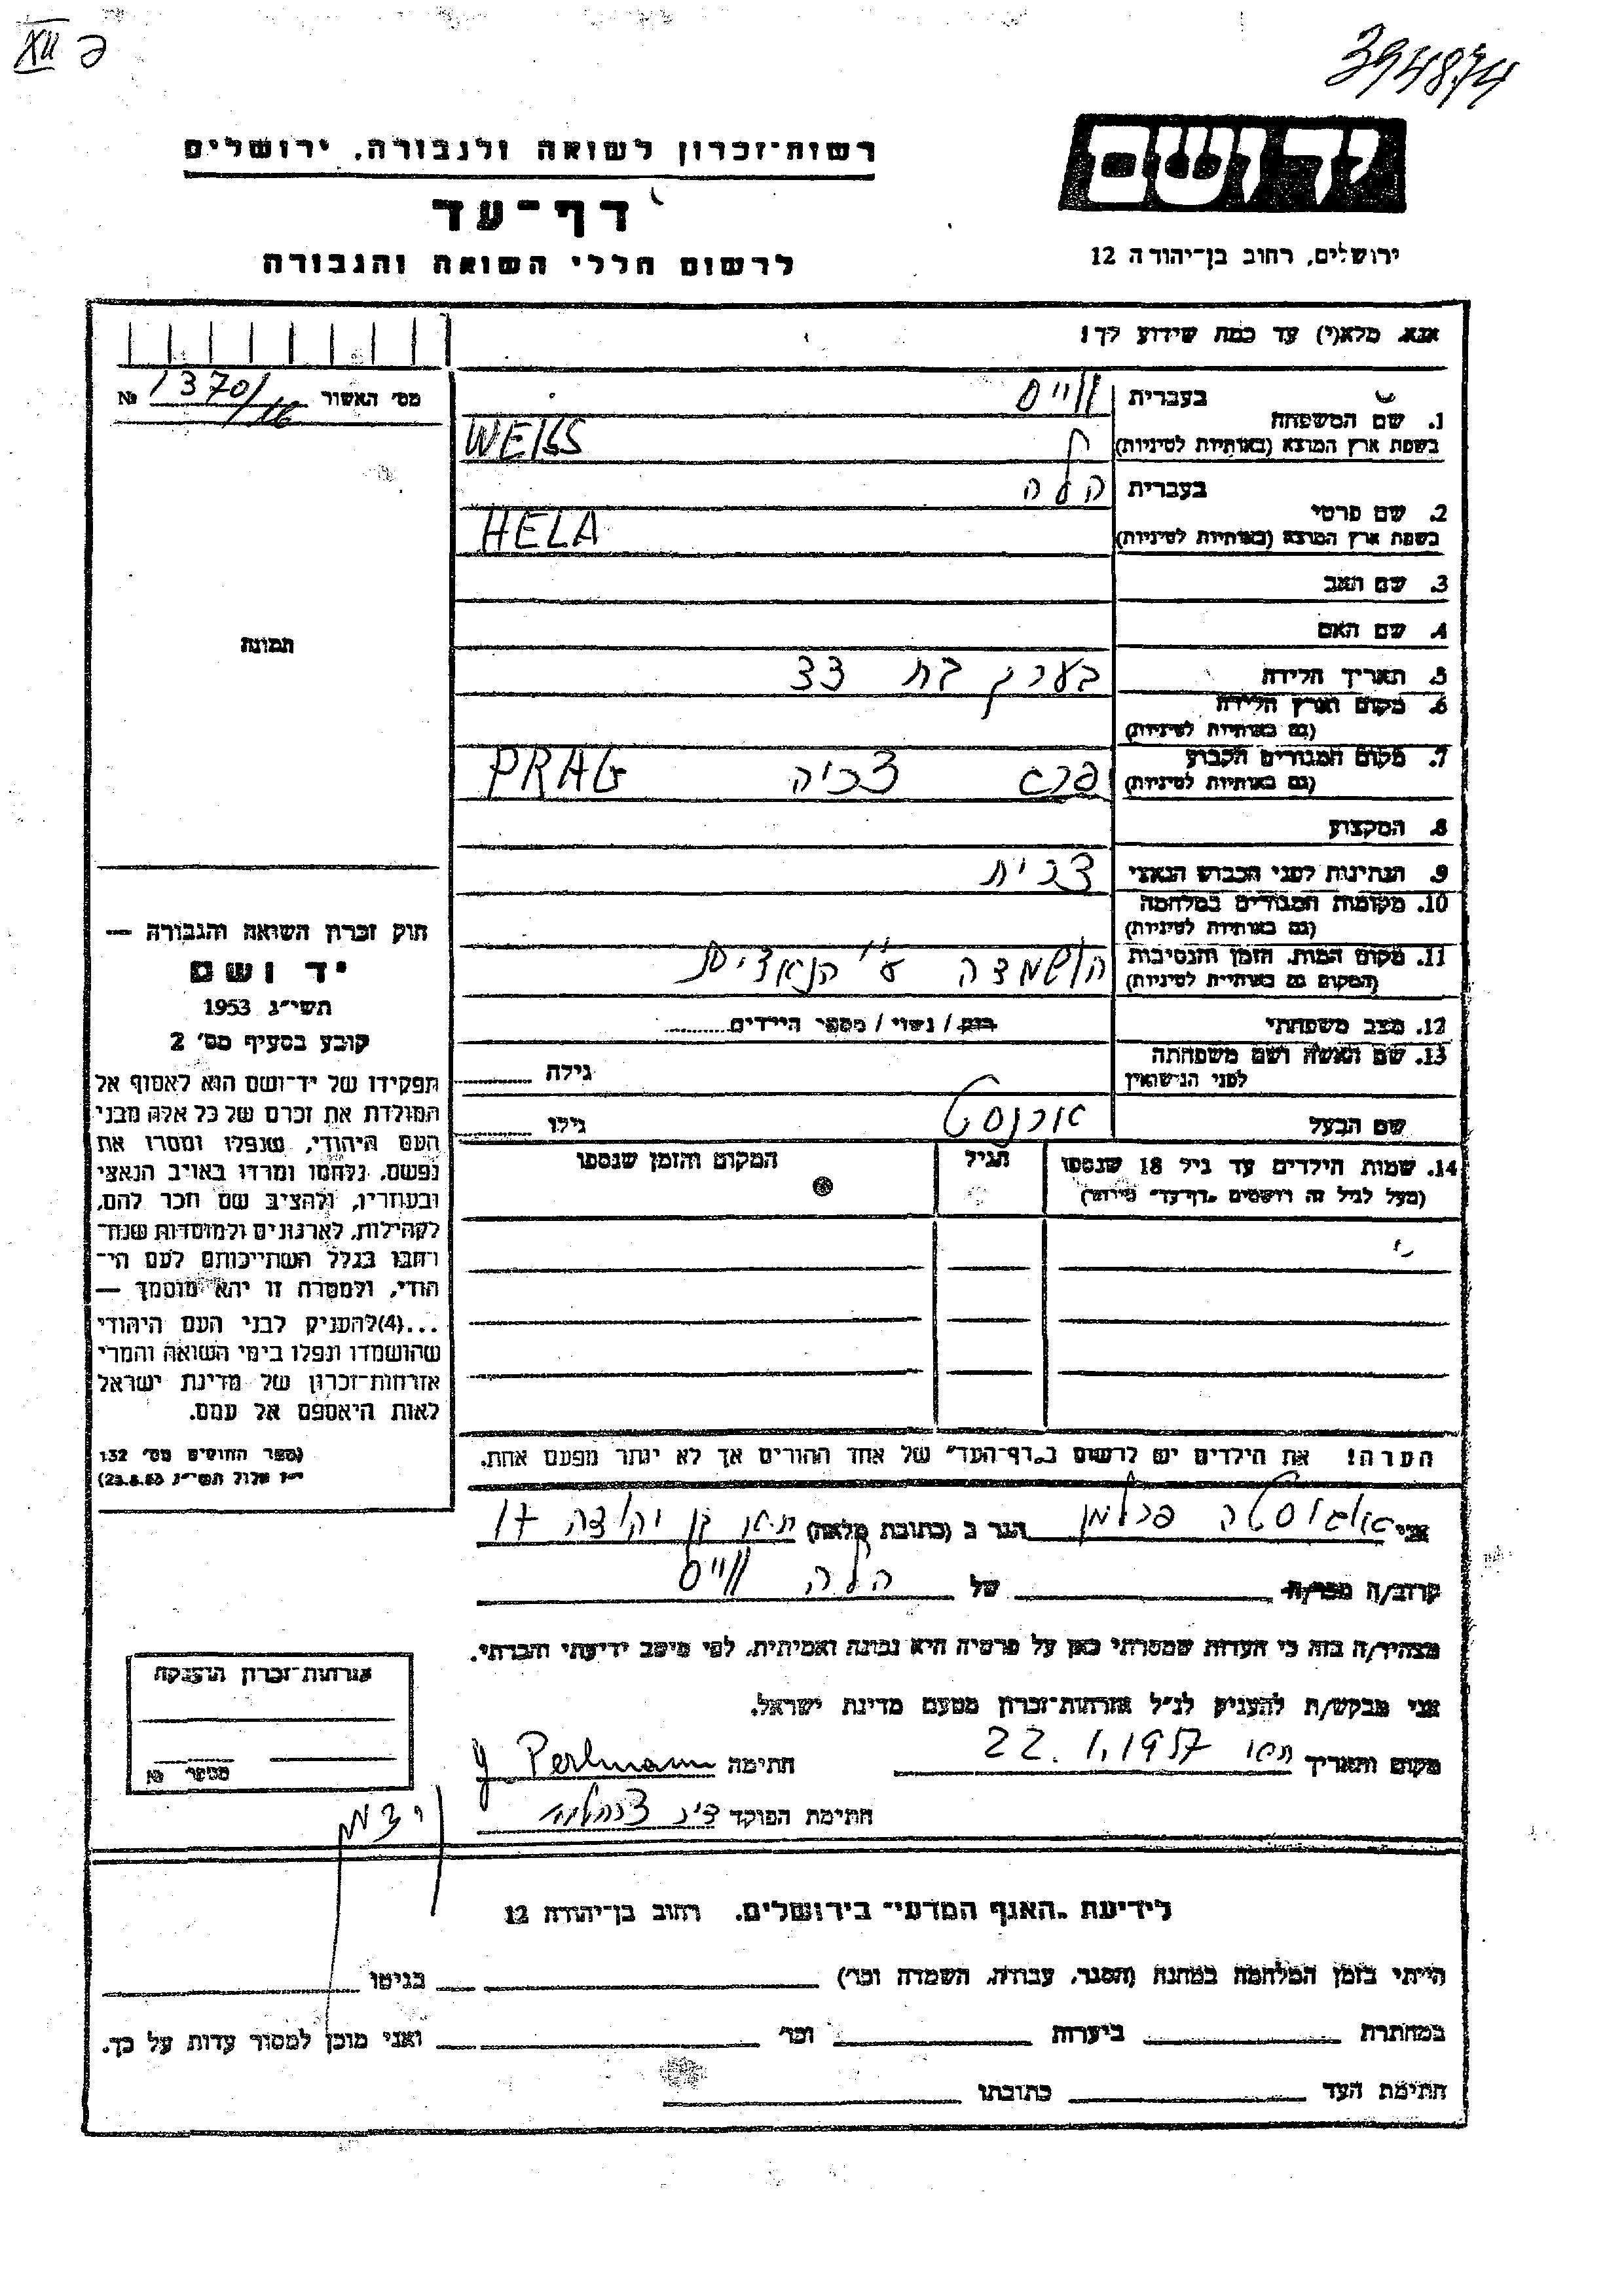 XII פ
394874
רשות־זכרון לשואה ולגבורה, ירושלים
יד ושם
דף־עד
ירושלים, רחוב בן־יהודה 12
לרשום חללי השואה והגבורה
אנא, מלא(י) עד כמה שידוע לך!
מס׳ האשור 1370/16 №
בעברית ווייס
1. שם המשפחה
בשפת ארץ המוצא (באותיות לטיניות) WEISS
בעברית הלה
2. שם פרטי
בשפת ארץ המוצא (באותיות לטיניות) HELA
3. שם האב
4. שם האם
תמונה
5. תאריך הלידה בערך בת 33
6. מקום וארץ הלידה
(גם באותיות לטיניות)
7. מקום המגורים הקבוע
(גם באותיות לטיניות) פרג צכיה PRAG
8. המקצוע
9. הנתינות לפני הכבוש הנאצי צכית
10. מקומות המגורים במלחמה
(גם באותיות לטיניות)
11. מקום המות, הזמן והנסיבות
(המקום גם באותיות לטיניות) הושמדה ע״י הנאצים
12. מצב משפחתי רווק / נשוי / מספר הילדים
13. שם האשה ושם משפחתה
לפני הנישואין גילה
שם הבעל ארנסט גילו
14. שמות הילדים עד גיל 18 שנספו הגיל המקום והזמן שנספו
(מעל לגיל זה רושמים „דף־עד״ מיוחד)
חוק זכרון השואה והגבורה —
יד ושם
תשי״ג 1953
קובע בסעיף מס׳ 2
תפקידו של יד־ושם הוא לאסוף אל
המולדת את זכרם של כל אלה מבני
העם היהודי, שנפלו ומסרו את
נפשם, נלחמו ומרדו באויב הנאצי
ובעוזריו, ולהציב שם וזכר להם,
לקהילות, לארגונים ולמוסדות שנח־
רחבו בגלל השתייכותם לעם הי־
הודי, ולמטרה זו יהא מוסמך —
...(4) להעניק לבני העם היהודי
שהושמדו ונפלו בימי השואה והמרי
אזרחות־זכרון של מדינת ישראל
לאות היאספם אל עמם.
(ספר החוקים מס׳ 132
י״ז אלול תשי״ג 28.8.53)
הערה! את הילדים יש לרשום ב„דף־העד״ של אחד ההורים אך לא יותר מפעם אחת.
אני אוגוסטה פרלמן הגר ב (כתובת מלאה) ת״א בן יהודה 17
קרוב/ה מכר/ה של הלה ווייס
מצהיר/ה בזה כי העדות שמסרתי כאן על פרטיה היא נכונה ואמיתית, לפי מיטב ידיעתי והכרתי.
אני מבקש/ת להעניק לנ״ל אזרחות־זכרון מטעם מדינת ישראל.
מקום ותאריך 22.1.1957 חתימה Perlmann
חתימת הפוקד
אזרחות־זכרון הוענקה
מספר №
לידיעת „האגף המדעי״ בירושלים, רחוב בן־יהודה 12
הייתי בזמן המלחמה במחנה (הסגר, עבודה, השמדה וכו׳) בגיטו
במחתרת ביערות וכו׳ ואני מוכן למסור עדות על כך.
חתימת העד כתובתו